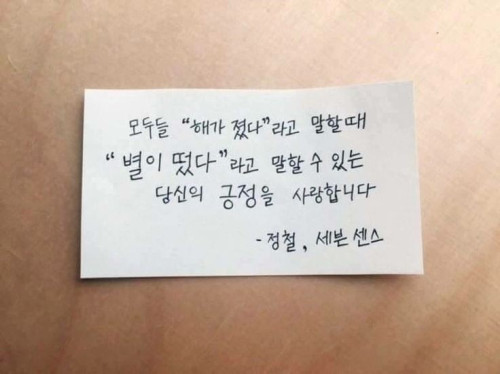 모두들 "해가 졌다"라고 말할 때
"별이 떴다"라고 말할 수 있는
당신의 긍정을 사랑합니다
- 정철, 세븐 센스